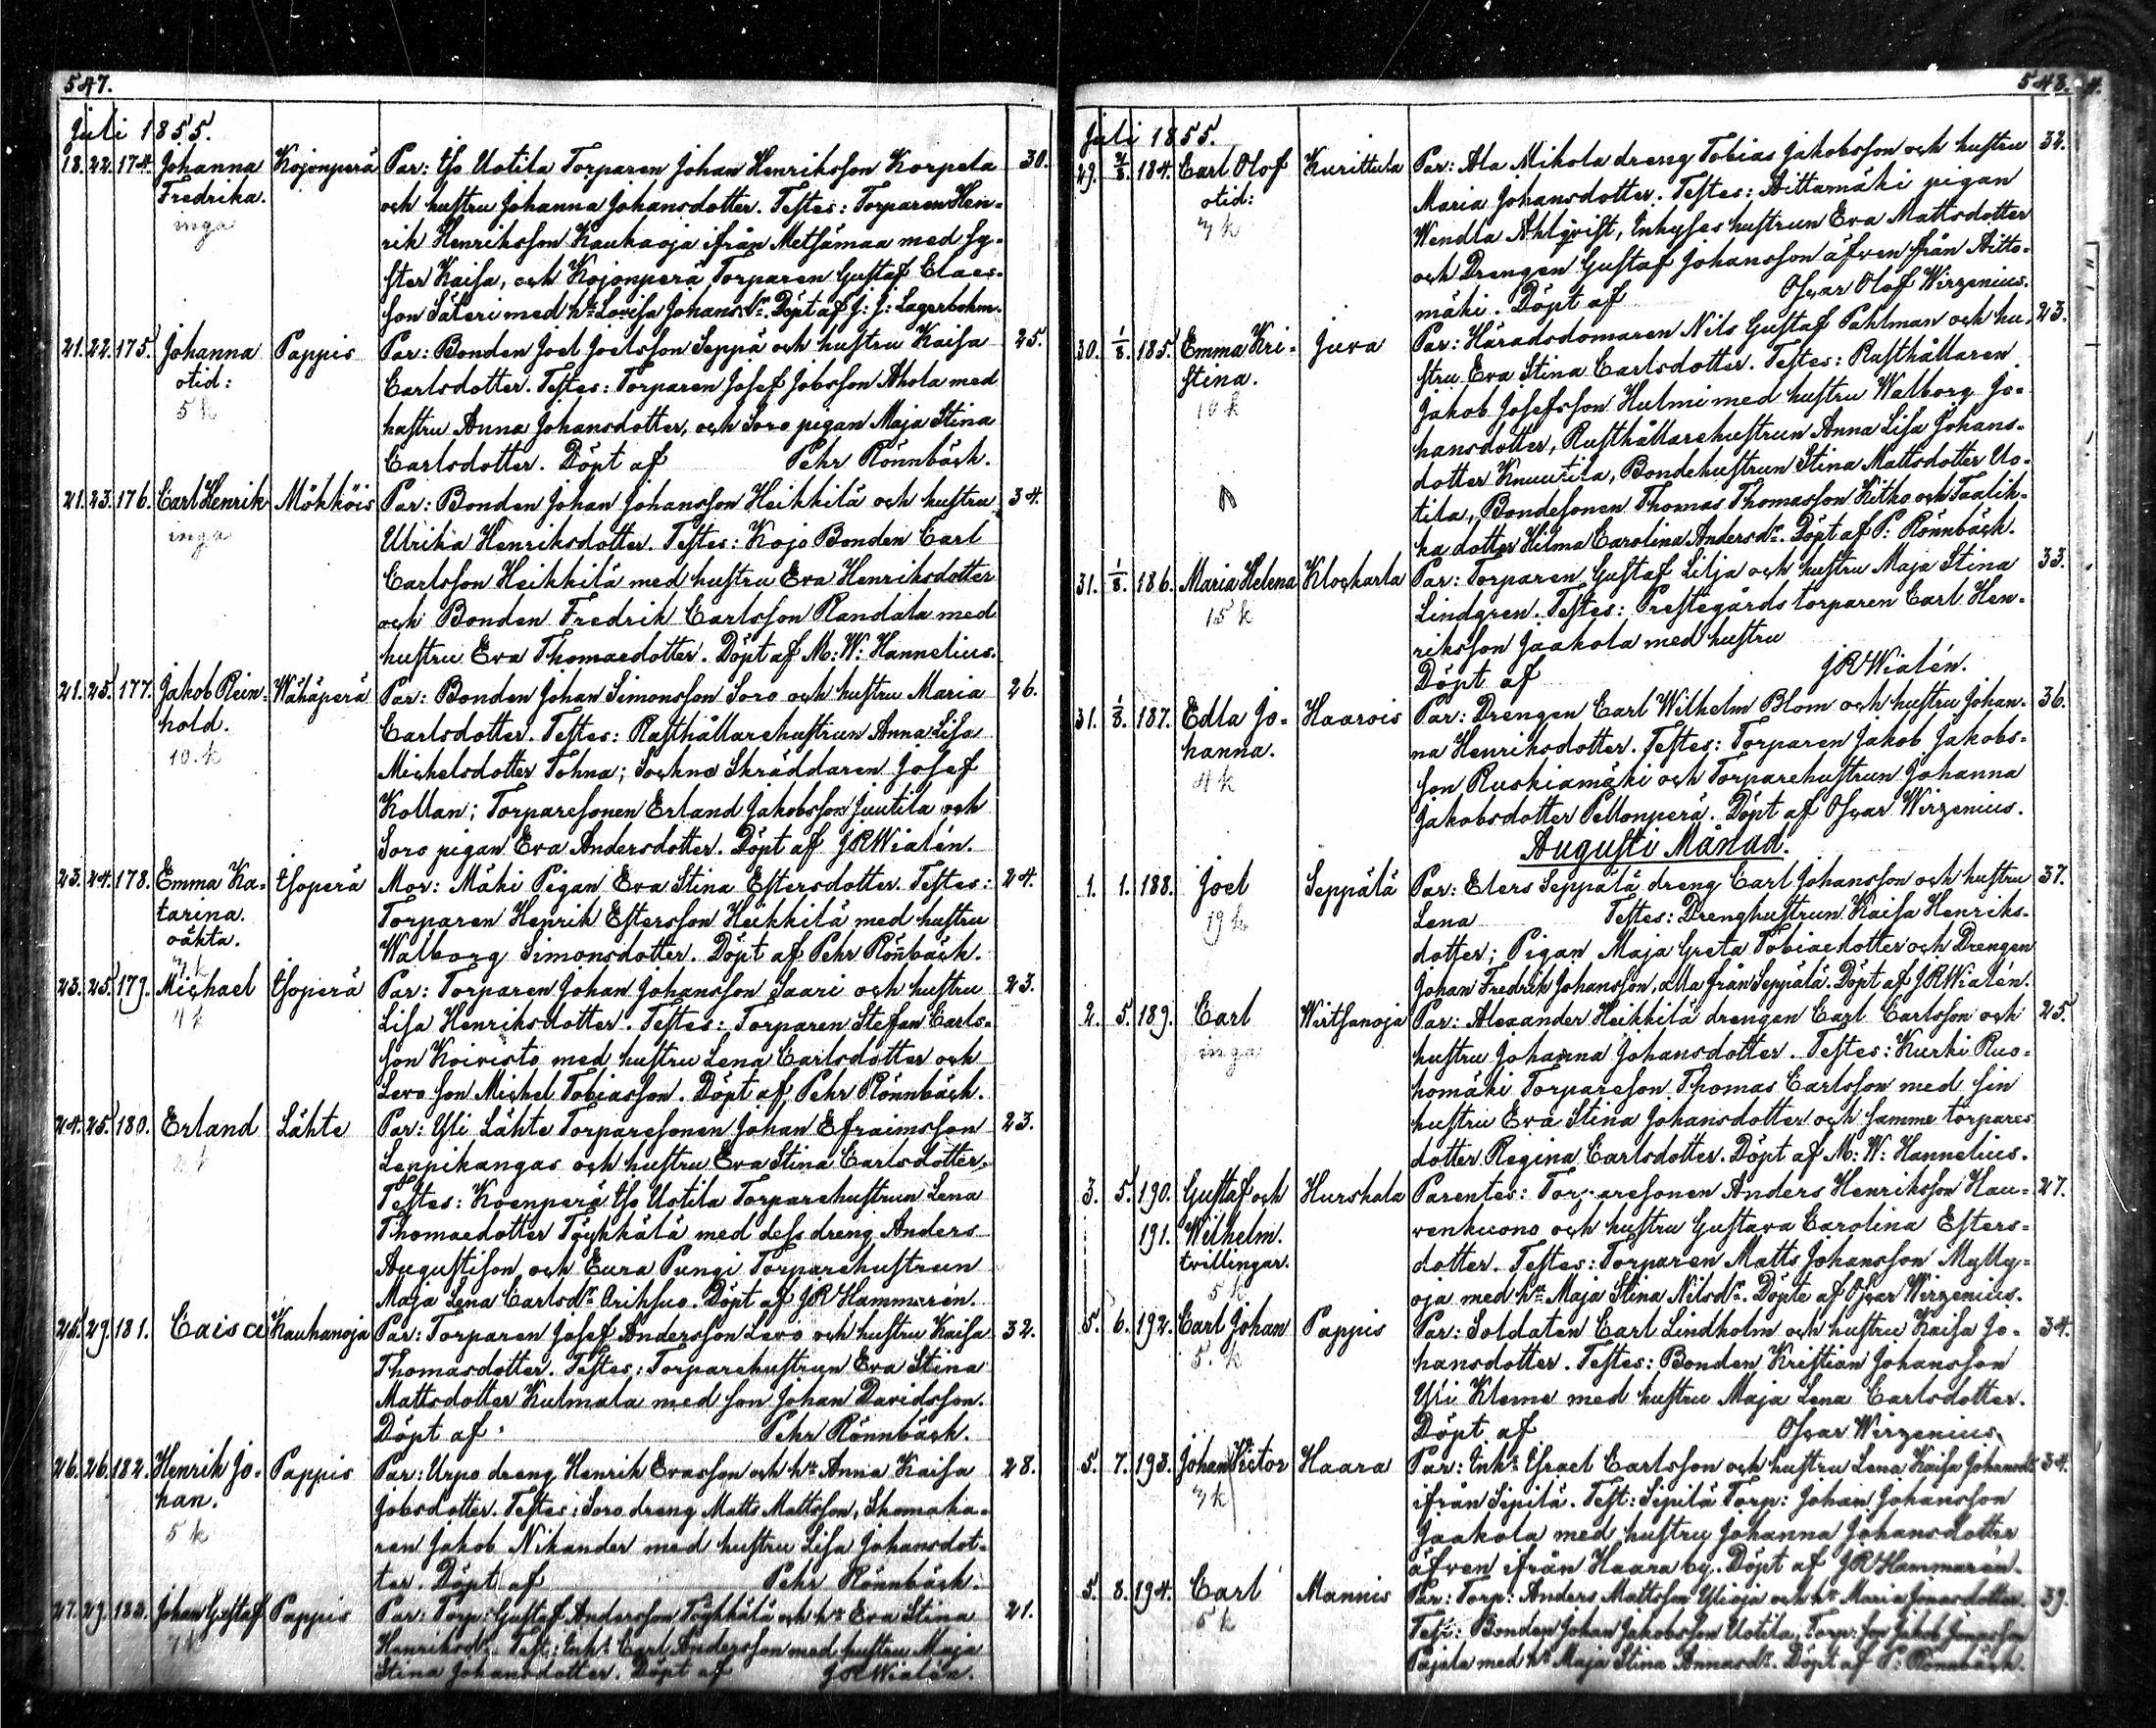 547.
Juli 1855.
18. 22. 174. Johanna Kojonperä Par: Iso Uotila Torparen Johan Henriksson Korpela 30.
Fredrika. och hustru Johanna Johansdotter. Testes: Torparen Hen-
inga rik Henriksson Kaukaoja ifrån Metsämaa med sy-
ster Kaisa, och Kojonperä Torparen Gustaf Claes-
son Säteri med hu Lovisa Johansdr. Döpt af J: J: Lagerbohm.
21. 22. 175. Johanna Pappis Par: Bonden Joel Joelsson Seppä och hustru Kaisa 25.
otid: Carlsdotter. Testes: Torparen Josef Jobsson Ahola med
5 k hustru Anna Johansdotter, och Soro pigan Maja Stina
Carlsdotter. Döpt af Pehr Rönnbäck.
21. 23. 176. Carl Henrik Mökköis Par: Bonden Johan Johansson Heikkilä och hustru 34.
inga Ulrika Henriksdotter. Testes: Kojo Bonden Carl
Carlsson Heikkilä med hustru Eva Henriksdotter
och Bonden Fredrik Carlsson Randala med
hustru Eva Thomaedotter. Döpt af M: W: Hannelius.
21. 25. 177. Jakob Rein- Wähäperä Par: Bonden Johan Simonsson Soro och hustru Maria 26.
hold. Carlsdotter. Testes: Rusthållarehustrun Anna Lisa
10. k Michelsdotter Tohna; Sockne Skräddaren Josef
Kollan; Torparesonen Erland Jakobsson Juutila och
Soro pigan Eva Andersdotter. Döpt af JRWialén.
23. 24. 178. Emma Ka- Isoperä Mor: Mäki Pigan Eva Stina Estersdotter. Testes: 24.
tarina. Torparen Henrik Estersson Heikkilä med hustru
oäkta. Walborg Simonsdotter. Döpt af Pehr Rönnbäck.
7 k
23. 25. 179. Michael Isoperä Par: Torparen Johan Johansson Saari och hustru 23.
4 k Lisa Henriksdotter. Testes: Torparen Stefan Carls-
son Koivisto med hustru Lena Carlsdotter och
Levo son Michel Tobiasson. Döpt af Pehr Rönnbäck.
24. 25. 180. Erland Lähte Par: Yli Lähte Torparesonen Johan Efraimsson 23.
Leppikangas och hustru Eva Stina Carlsdotter.
Testes: Koenperä Iso Uotila Torparehustrun Lena
Thomaedotter Töykkälä med dess dreng Anders
Augustison och Eura Pungi Torparehustrun
Maja Lena Carlsdr Ariksuo. Döpt af JRHammarén.
25. 29. 181. Caisa Kauhanoja Par: Torparen Josef Andersson Levo och hustru Kaisa 32.
Thomasdotter. Testes: Torparehustrun Eva Stina
Mattsdotter Kulmala med son Johan Davidsson.
Döpt af Pehr Rönnbäck.
26. 26. 182. Henrik Jo- Pappis Par: Urpo dreng Henrik Evasson och hu Anna Kaisa 28.
han. Jobsdotter. Testes: Soro dreng Matts Mattsson, Skomaka-
5 k ren Jakob Nikander med hustru Lisa Johansdot-
ter. Döpt af Pehr Rönnbäck.
27. 29. 183. Johan Gustaf Pappis Par: Torp: Gustaf Andersson Töykkälä och hu Eva Stina 21.
7 k Henriksdr. Test: Inhs Carl Andersson med hustru Maja
Stina Johansdotter. Döpt af JRWialén.
548.
Juli 1855.
29. 2/8. 184. Carl Olof Kurittula Par: Ala Mikola dreng Tobias Jakobsson och hustru 32.
otid: Maria Johansdotter. Testes: Aittamäki pigan
7 k Wendla Ahlqvist, Inhyses hustrun Eva Mattsdotter
och Drengen Gustaf Johansson äfven från Aitto-
mäki. Döpt af Oscar Olof Wirzenius.
30. 1/8. 185. Emma Kri- Juva Par: Häradsdomaren Nils Gustaf Pahlman och hu- 23.
stina. stru Eva Stina Carlsdotter. Testes: Rusthållaren
10 k Jakob Josefsson Hulmi med hustru Walborg Jo-
hansdotter, Rusthållarehustrun Anna Lisa Johans-
dotter Knuutila, Bondehustrun Stina Mattsdotter Uo-
tila, Bondesonen Thomas Thomasson Kitko och Taalik-
ka dotter Hilma Carolina Andersdr. Döpt af P: Rönnbäck.
31. 1/8. 186. Maria Helena Klockarla Par: Torparen Gustaf Lilja och hustru Maja Stina 33.
15 k Lindgren. Testes: Prestegårds torparen Carl Hen-
riksson Jaakola med hustru
Döpt af JRWialén.
31. 1/8. 187. Edla Jo- Haarois Par: Drengen Carl Wilhelm Blom och hustru Johan- 36.
hanna. na Henriksdotter. Testes: Torparen Jakob Jakobs-
4 k son Ruskiamäki och Torparehustrun Johanna
Jakobsdotter Peltonperä. Döpt af Oscar Wirzenius.
Augusti Månad.
1. 1. 188. Joel Seppälä Par: Elers Seppälä dreng Carl Johansson och hustru 37.
19 k Lena Testes: Drenghustrun Kaisa Henriks-
dotter; Pigan Maja Greta Tobiaedotter och Drengen
Johan Fredrik Johansson, alla från Seppälä. Döpt af JRWialén.
2. 5. 189. Carl Wirtsanoja Par: Alexander Heikkilä drengen Carl Carlsson och 25.
inga hustru Johanna Johansdotter. Testes: Kurki Ruo-
homäki Torpareson Thomas Carlsson med sin
hustru Eva Stina Johansdotter och samme torpares
dotter Regina Carlsdotter. Döpt af M: W: Hannelius.
3. 5. 190. Gustaf och Hurskala Parentes: Torparesonen Anders Henriksson Hau- 27.
191. Wilhelm. renkuono och hustru Gustava Carolina Esters-
tvillingar. dotter. Testes: Torparen Matts Johansson Mylly-
5 k oja med hu Maja Stina Nilsdr. Döpte af Oscar Wirzenius.
5. 6. 192. Carl Johan Pappis Par: Soldaten Carl Lindholm och hustru Kaisa Jo- 34.
5. k hansdotter. Testes: Bonden Kristian Johansson
Yli Kleme med hustru Maja Lena Carlsdotter.
Döpt af Oscar Wirzenius.
5. 7. 193. Johan Victor Haara Par: Inhs Israel Carlsson och hustru Lena Kaisa Johansdr 34.
7 k ifrån Sipilä. Test: Sipilä Torp: Johan Johansson
Jaakola med hustru Johanna Johansdotter
äfven ifrån Haara by. Döpt af JRHammarén.
5. 8. 194. Carl Mannis Par: Torp: Anders Mattsson Ylioja och hu Maria Jonasdotter. 39.
5 k Test: Bonden Johan Jakobsson Uotila, Torp: son Jakob Jonasson
Pajala med hu Maja Stina Annasdr. Döpt af P: Rönnbäck.